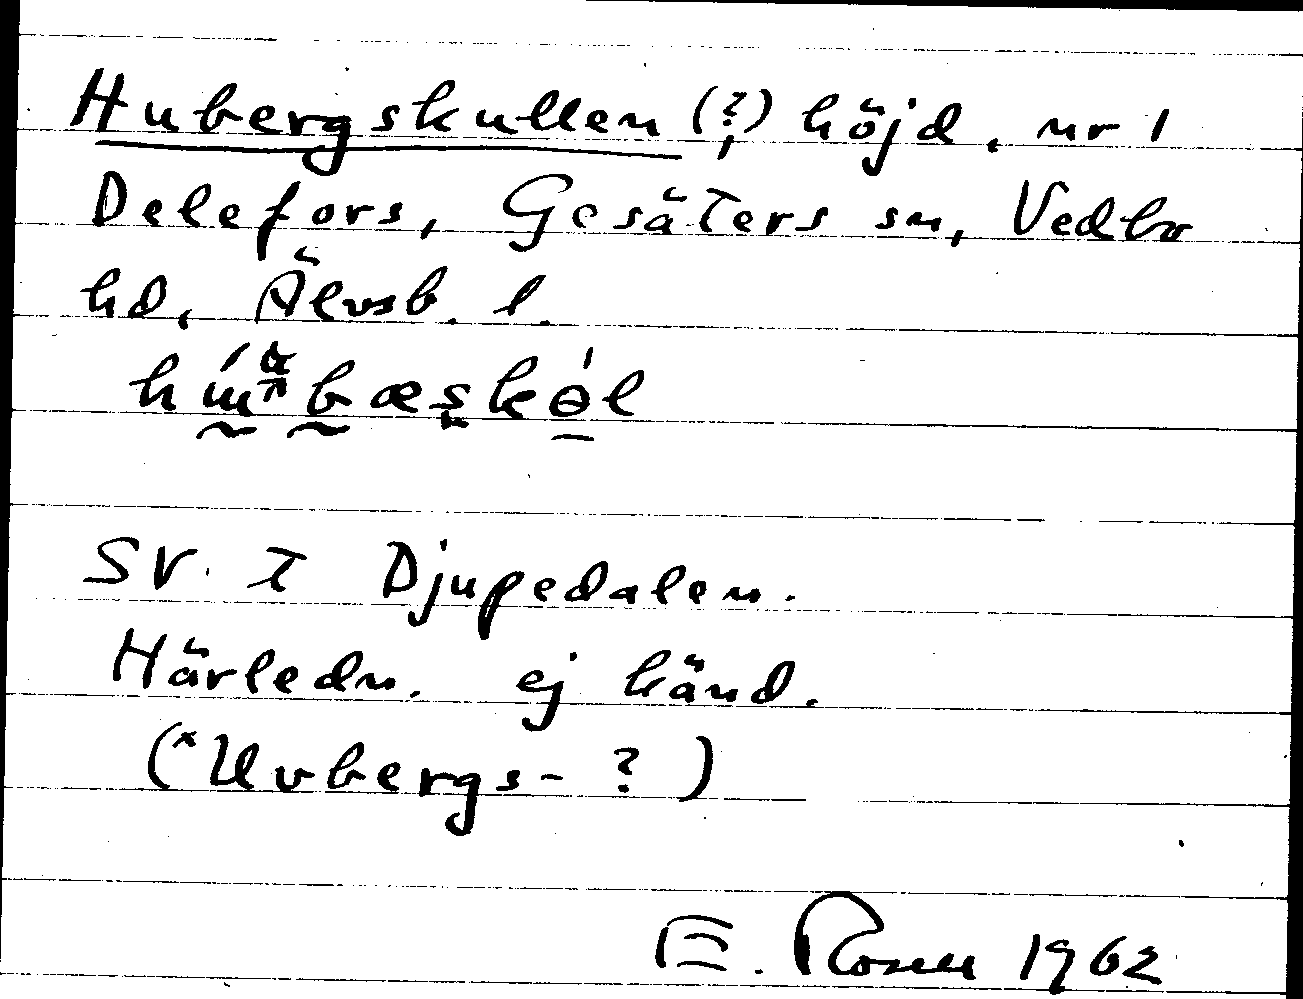 Hubergskullen (?), höjd, nr 1
Delefors, Gesäters sn, Vedbo
hd, Älvsb. l.
SV. t Djupedalen.
Härledn. ej känd.
(*Uvbergs- ?)
E. Rosell 1962